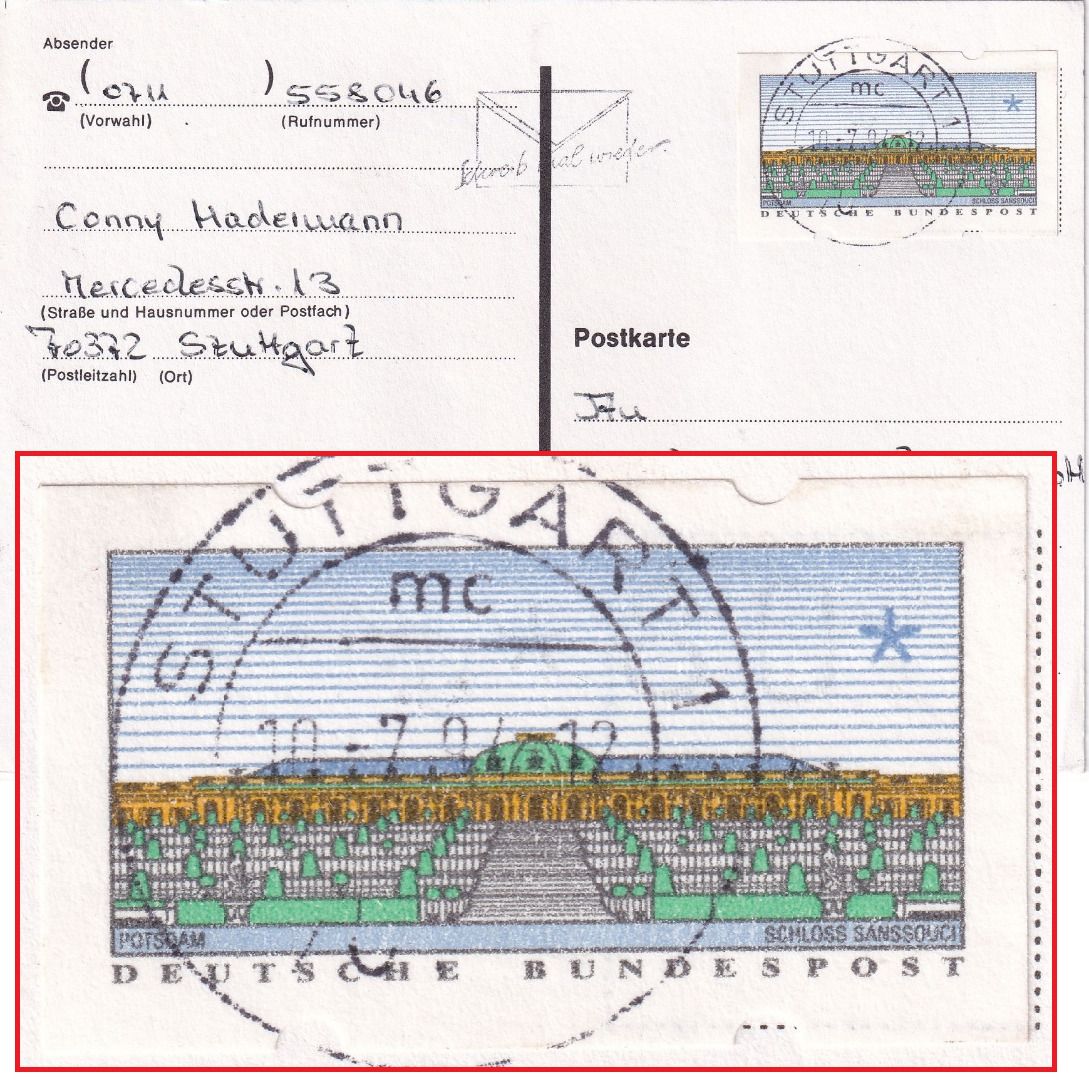 Absender
(0711) 558046
(Vorwahl) (Rufnummer)
Schreib mal wieder.
Conny Hadermann
Mercedesstr. 13
(Straße und Hausnummer oder Postfach)
70372 Stuttgart
(Postleitzahl) (Ort)
STUTTGART 1
mc
10.-7.94-12
POTSDAM SCHLOSS SANSSOUCI
DEUTSCHE BUNDESPOST
Postkarte
STUTTGART 1
mc
10.-7.94-12
POTSDAM SCHLOSS SANSSOUCI
DEUTSCHE BUNDESPOST